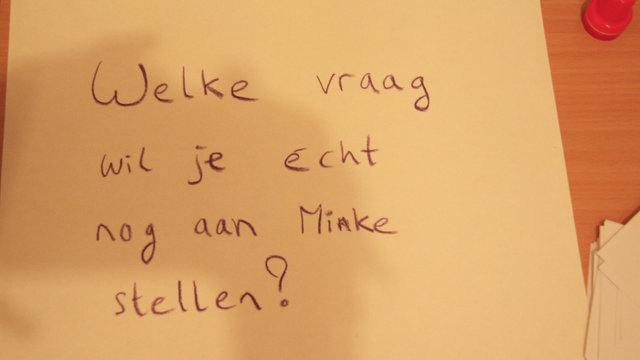 Welke vraag
wil je écht
nog aan Minke
stellen?